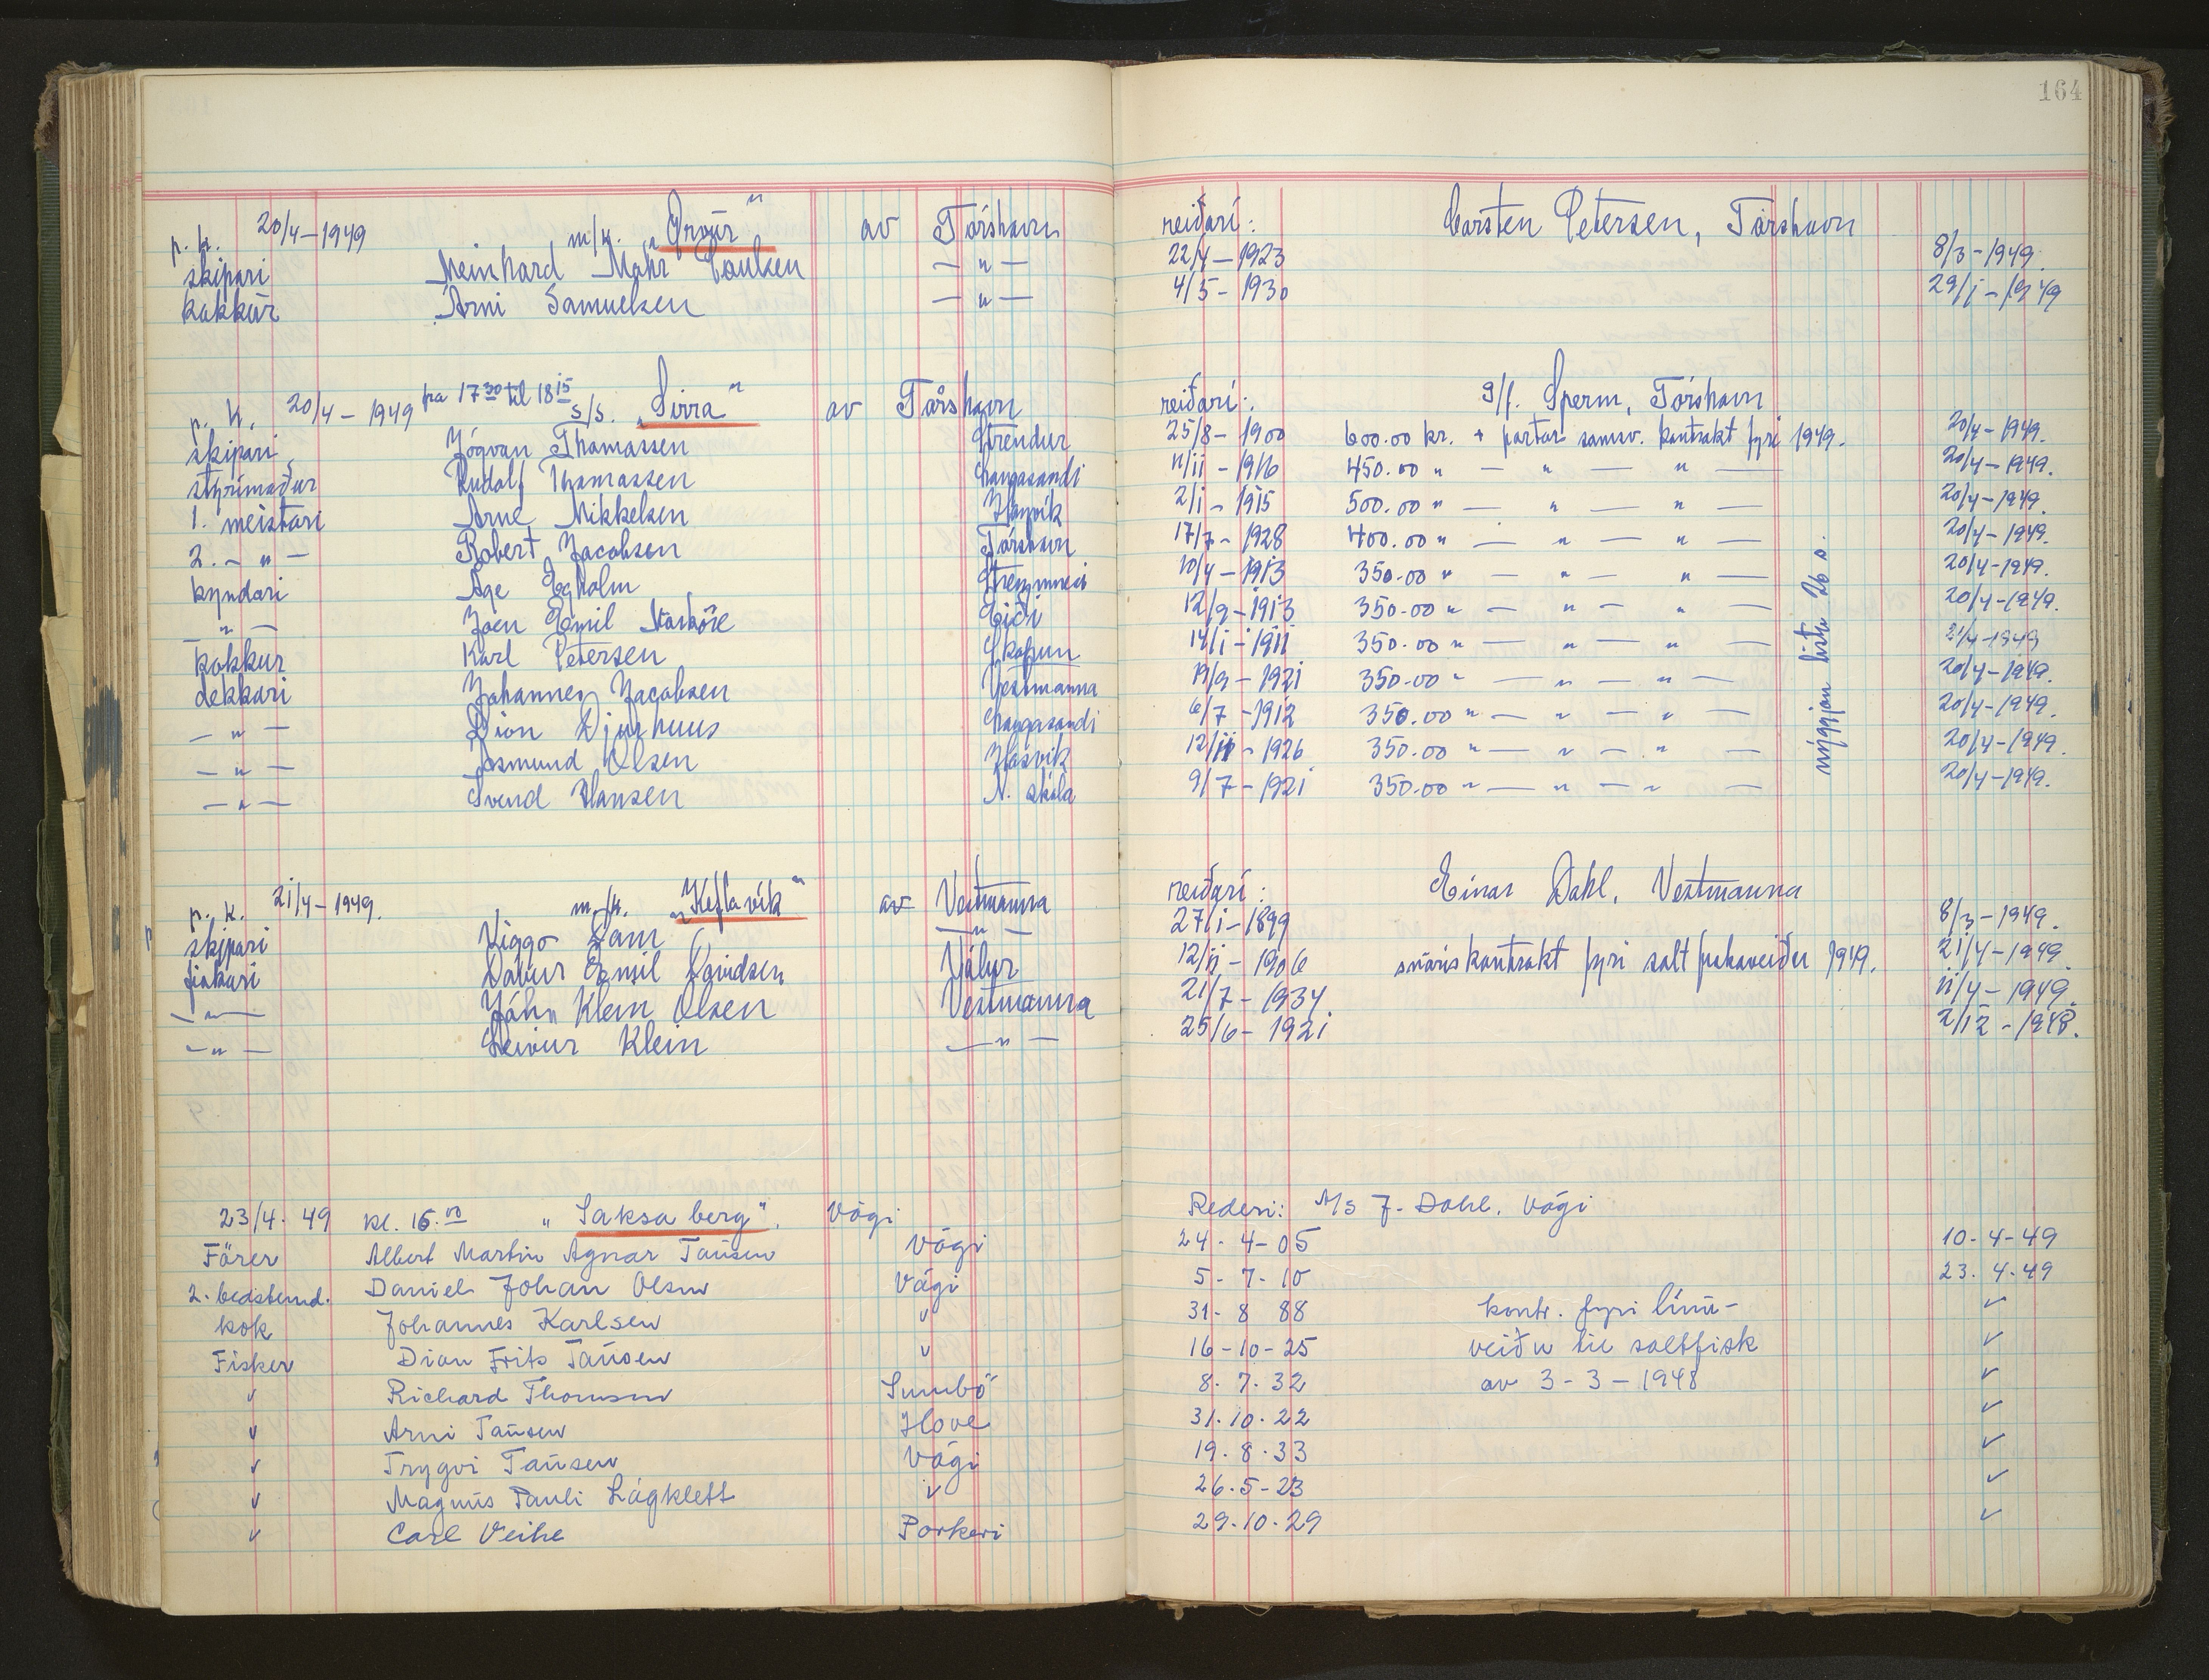 164
p. k. 20/4-1949 m/k. „Orvür" av Tórshavn reiðarí: Carsten Petersen, Tórshavn
skipari Meinhard Mohr Poulsen — " — 22/4-1923 8/3-1949.
kokkur Árni Samuelsen — " — 4/5-1930 29/1-1949
p. k. 20/4-1949 fra 17 30 til 18 15 s/s. „Sirra" av Tórshavn reiðarí: S/f. Sperm, Tórshavn
skipari Jógvan Thomassen Strendur 25/8-1900 600.00 kr. + partar samsv. kontrakt fyri 1949. 20/4-1949.
stýrimaður Rudolf Thomassen Langasandi 11/11-1916 450.00 " — " — " — 20/4-1949.
1. meistari Arne Mikkelsen Hoyvík 2/1-1915 500.00 " — " — " — 20/4-1949.
2. - " - Robert Jacobsen Tórshavn 17/7-1928 400.00 " — " — " — 20/4-1949.
kyndari Åge Egholm Streymnes 10/4-1913 350.00 " — " — " — 20/4-1949.
— " — Joen Emil Norðoře Eiði 12/9-1913 350.00 " — " — " — 20/4-1949.
kokkur Karl Petersen Skopun 14/1-1911 350.00 " — " — " — 21/4-1949
dekkari Johannes Jacobsen Vestmanna 19/9-1921 350.00 " — " — " — 20/4-1949.
— " — Dion Djurhuus Langasandi 6/7-1912 350.00 " — " — " — 20/4-1949.
— " — Ásmund Olsen Hósvík 12/11-1926 350.00 " — " — " — 20/4-1949.
— " — Svend Hansen N. skála 9/7-1921 350.00 " — " — " — 20/4-1949.
mýggjan lista 26 s.
p. k. 21/4-1949. m/k. „Keflavík" av Vestmanna reiðarí: Einar Dahl, Vestmanna
skipari Viggo Dam — " — 27/1-1899 8/3-1949.
fiskari Dávur Emil Davidsen Válur 12/11-1906 snøris kontrakt fyri salt fiskaveiðu 1949. 21/4-1949
— " — Jóhn Klein Olsen Vestmanna 21/7-1934 11/4-1949.
— " — Leivur Klein — " — 25/6-1921 2/12-1948.
23/4. 49 kl. 16.00 „Saksaberg". Vági Rederi: A/s J. Dahl. Vági
Förer Albert Martin Agnar Tausen Vági 24-4-05 10-4-49
2. bedstemd. Daniel Johan Olsen Vági 5-7-10 23.4.49
kok Johannes Karlsen " 31-8 88 kontr. fyri línu- "
Fisker Dion Frits Tausen " 16-10-25 veiðu til saltfisk "
" Richard Thomsen Sumbö 8.7.32 av 3-3-1948 "
" Arni Tausen Hove 31.10.22 "
" Trygvi Tausen Vági 19.8.33 "
" Magnus Pauli Lágklett " 26.5-23 "
" Carl Veihe Porkeri 29.10.29 "